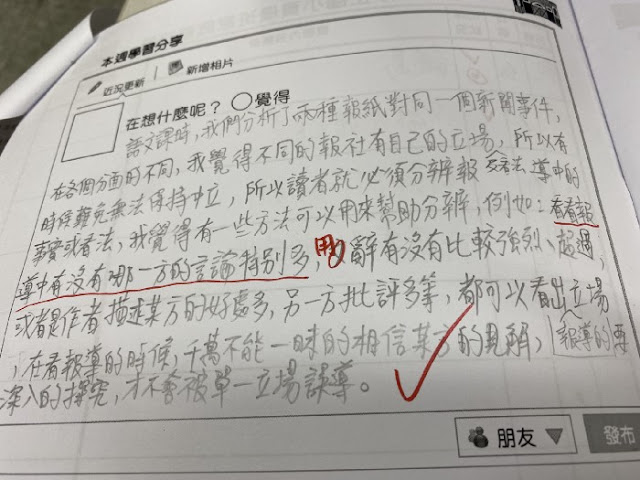 本週學習分享
近況更新 | 新增相片
在想什麼呢? ○覺得
語文課時,我們分析了兩種報紙對同一個新聞事件,
在各個方面的不同,我覺得不同的報社有自己的立場,所以有
時候難免無法保持中立,所以讀者就必須分辨報導中的
事實或看法,我覺得有一些方法可以用來幫助分辨,例如:看看報
導中有沒有哪一方的言論特別多,用辭有沒有比較強烈、超過,
或者是作者描述某方的好處多,另一方批評多等,都可以看出立場
,在看報導的時候,千萬不能一昧的相信某方的見解,報導的要
深入的探究,才不會被單一立場誤導。
朋友
發布